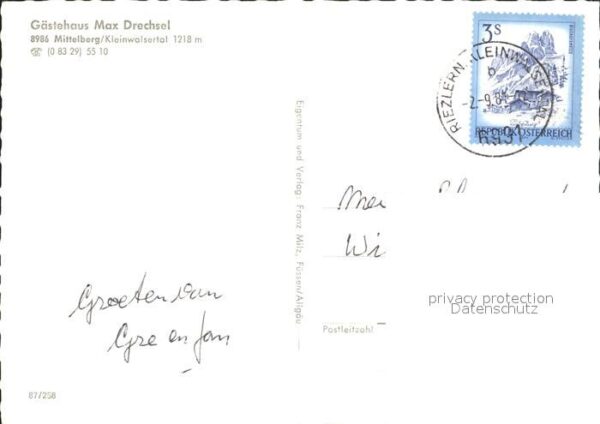 Gästehaus Max Drechsel
8986 Mittelberg/Kleinwalsertal 1218 m
☎ (0 83 29) 55 10
Eigentum und Verlag: Franz Milz, Füssen/Allgäu
3S
REPUBLIK ÖSTERREICH
RIEZLERN, KLEINWALSERTAL
b
-2.-9.81
6991
Wi
privacy protection
Datenschutz
Groeten van
Gre en Jan
Postleitzahl
87/258